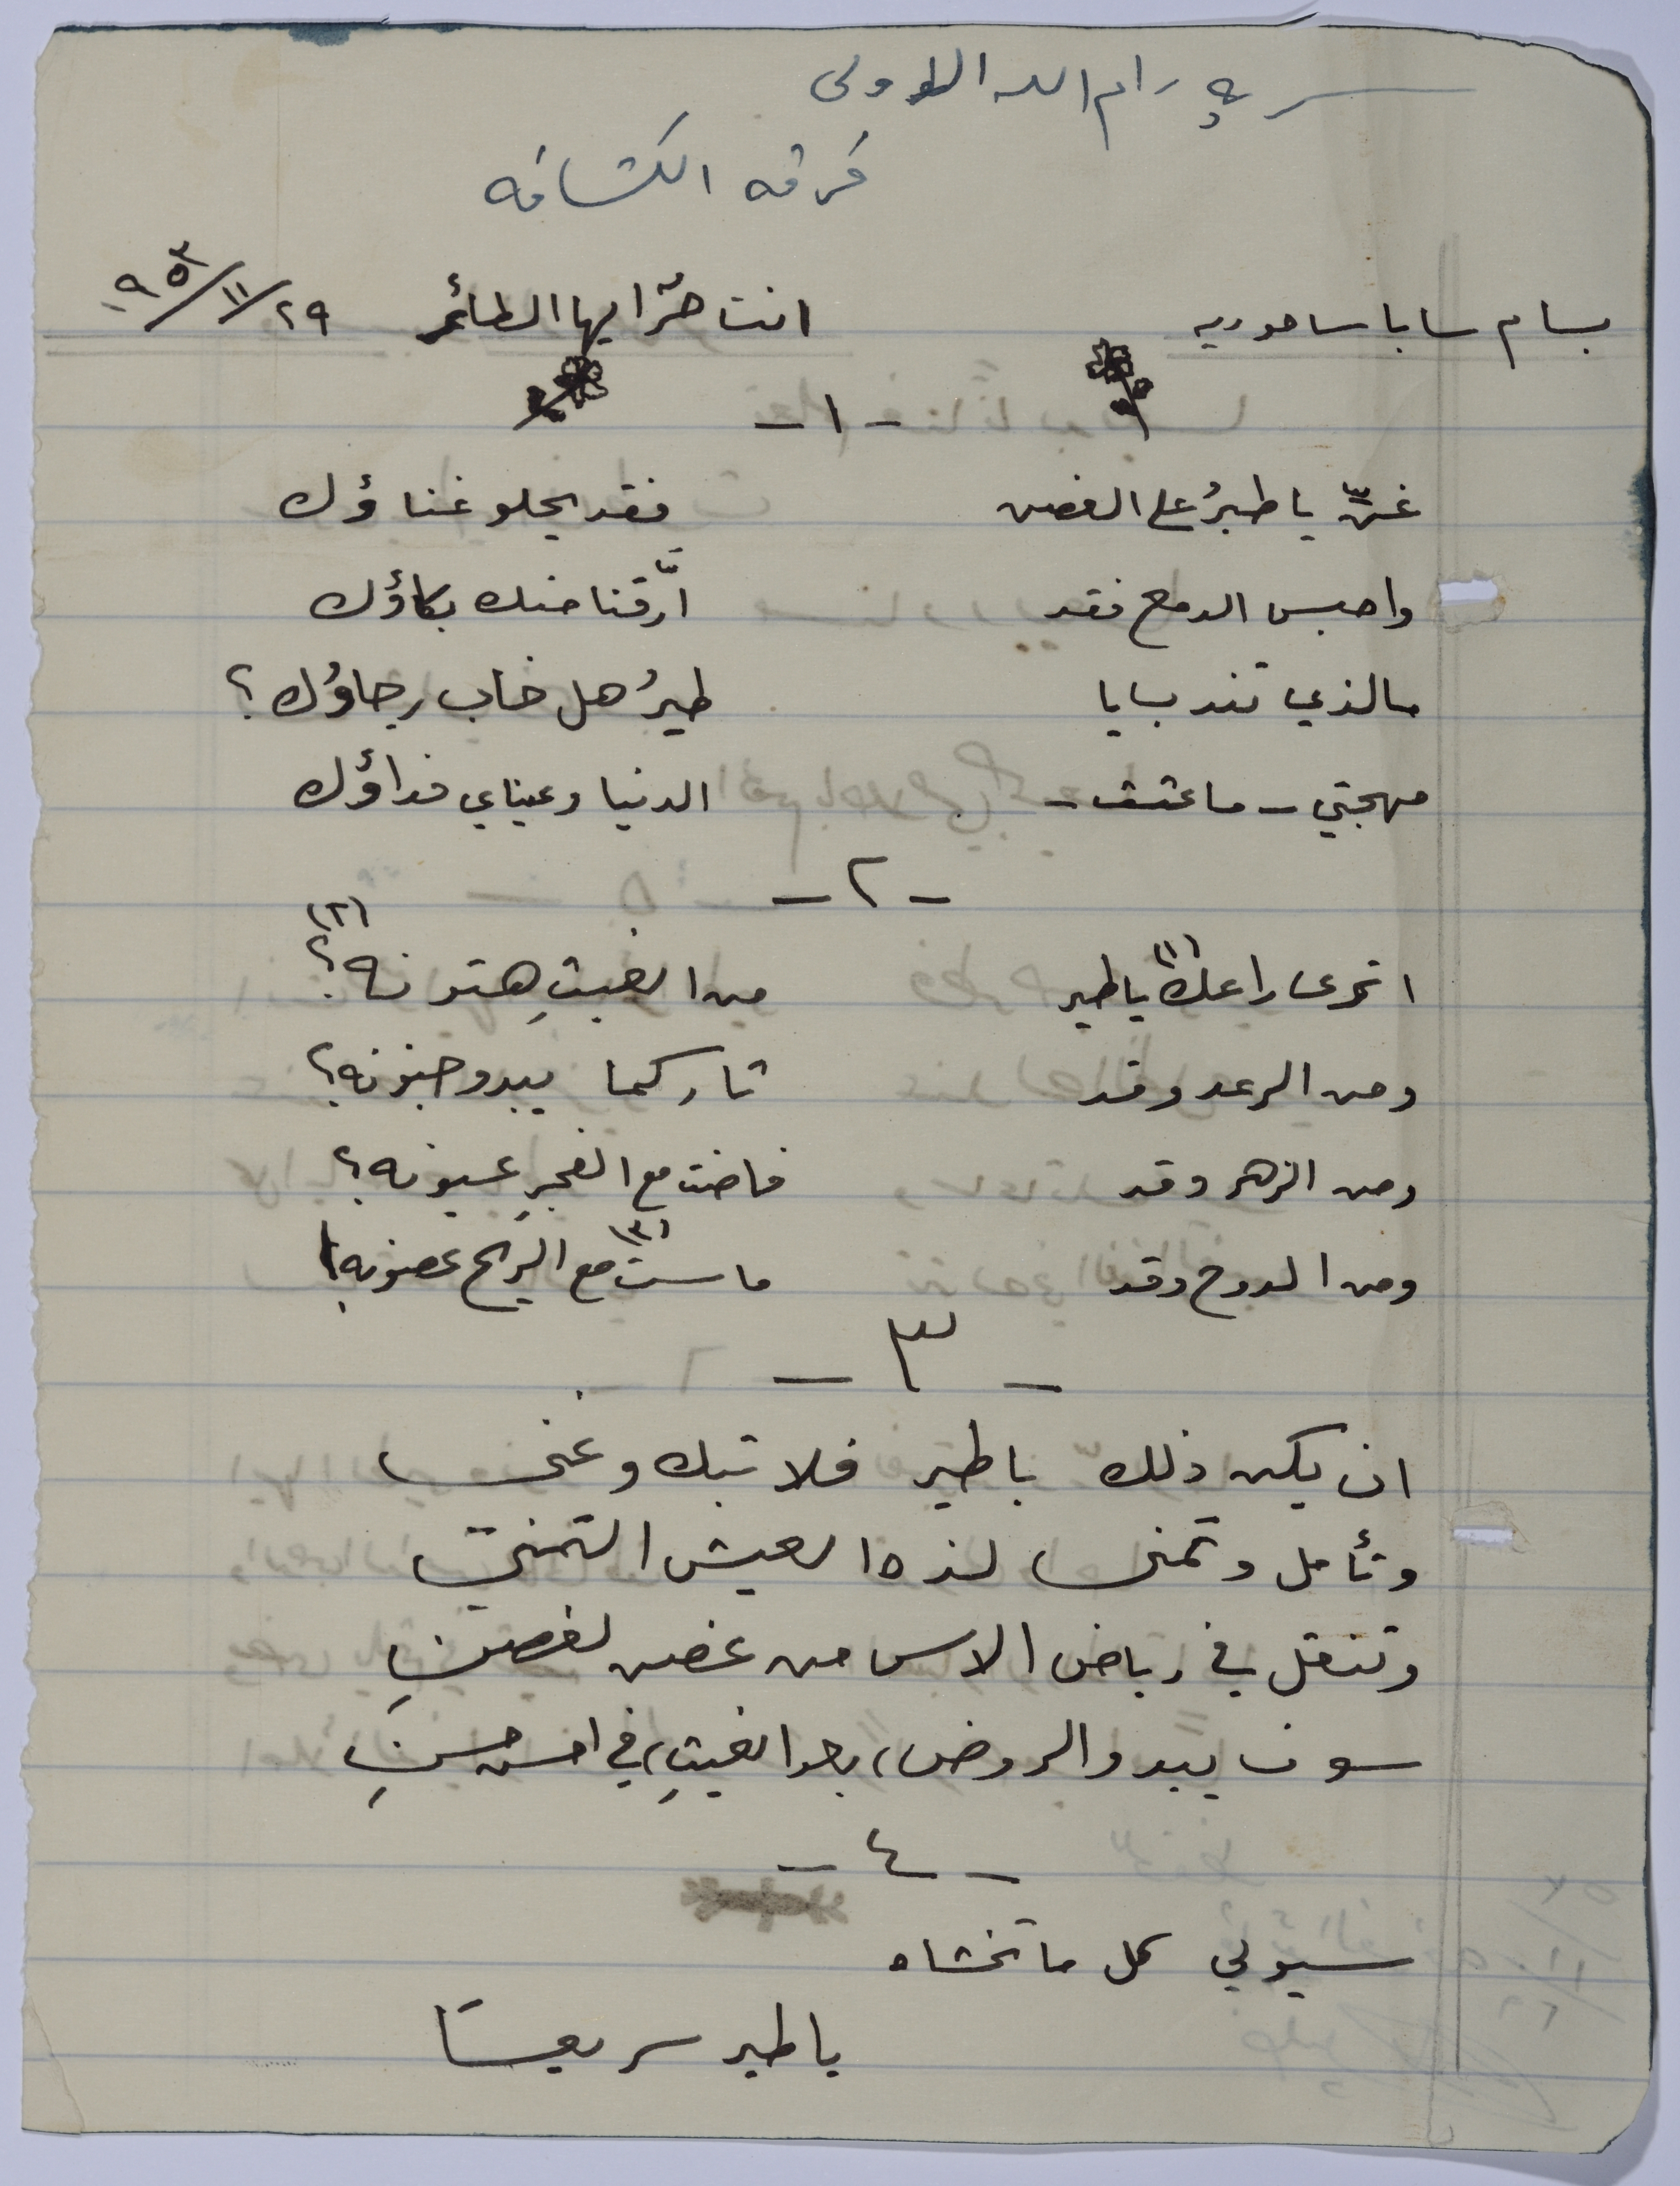 سرية رام الله الاولى
فرقه الكشافه
بسام سابا ساحوريه انت حرٌ ايها الطائر ٢٩/١١/٩٥٣
-١-
غنِّ يا طيرُ على الغصن فقد يحلو غناؤك
واحبس الدمع فقد ارَّقنا منك بكاؤك
مالذي تندب يا طيرُ هل خاب رجاؤك؟
مهجتي - ما عشت - الدنيا وعيناي فداؤك
-٢-
اترى راعك(١) يا طير من الغيثِ هتونه(٢)؟
ومن الرعد وقد ثار كما يبدو جنونه؟
ومن الزهر وقد فاضت مع الفجرِ عيونه؟
ومن الدوح وقد ماست(٣) مع الريح غصونه؟
-٣-
ان يكن ذلك يا طير فلا تبك وغني
وتأمل وتمنى لذه العيش التمني
وتنقل في رياض الاس من غصن لغصنِ
سوف يبدو الروض، بعد الغيثِ، في احسن حسنِ
-٤-
سيولي كل ما تخشاه
يا طير سريعًا